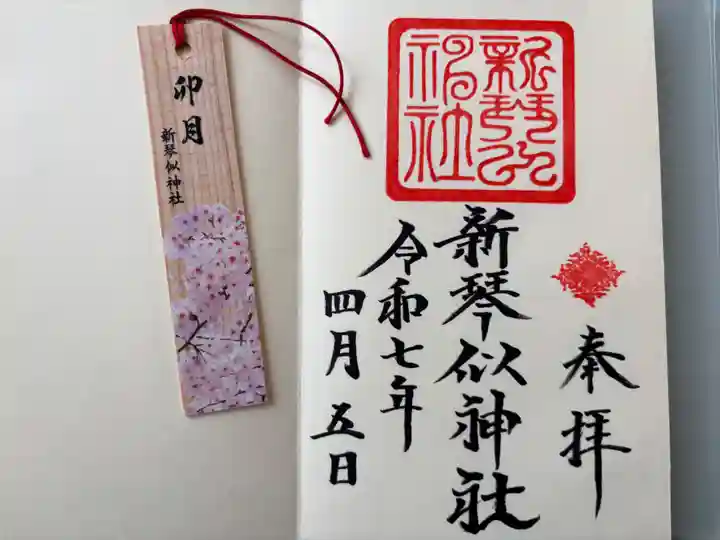 奉拝
新琴似神社
新琴似神社
令和七年
四月五日
卯月
新琴似神社